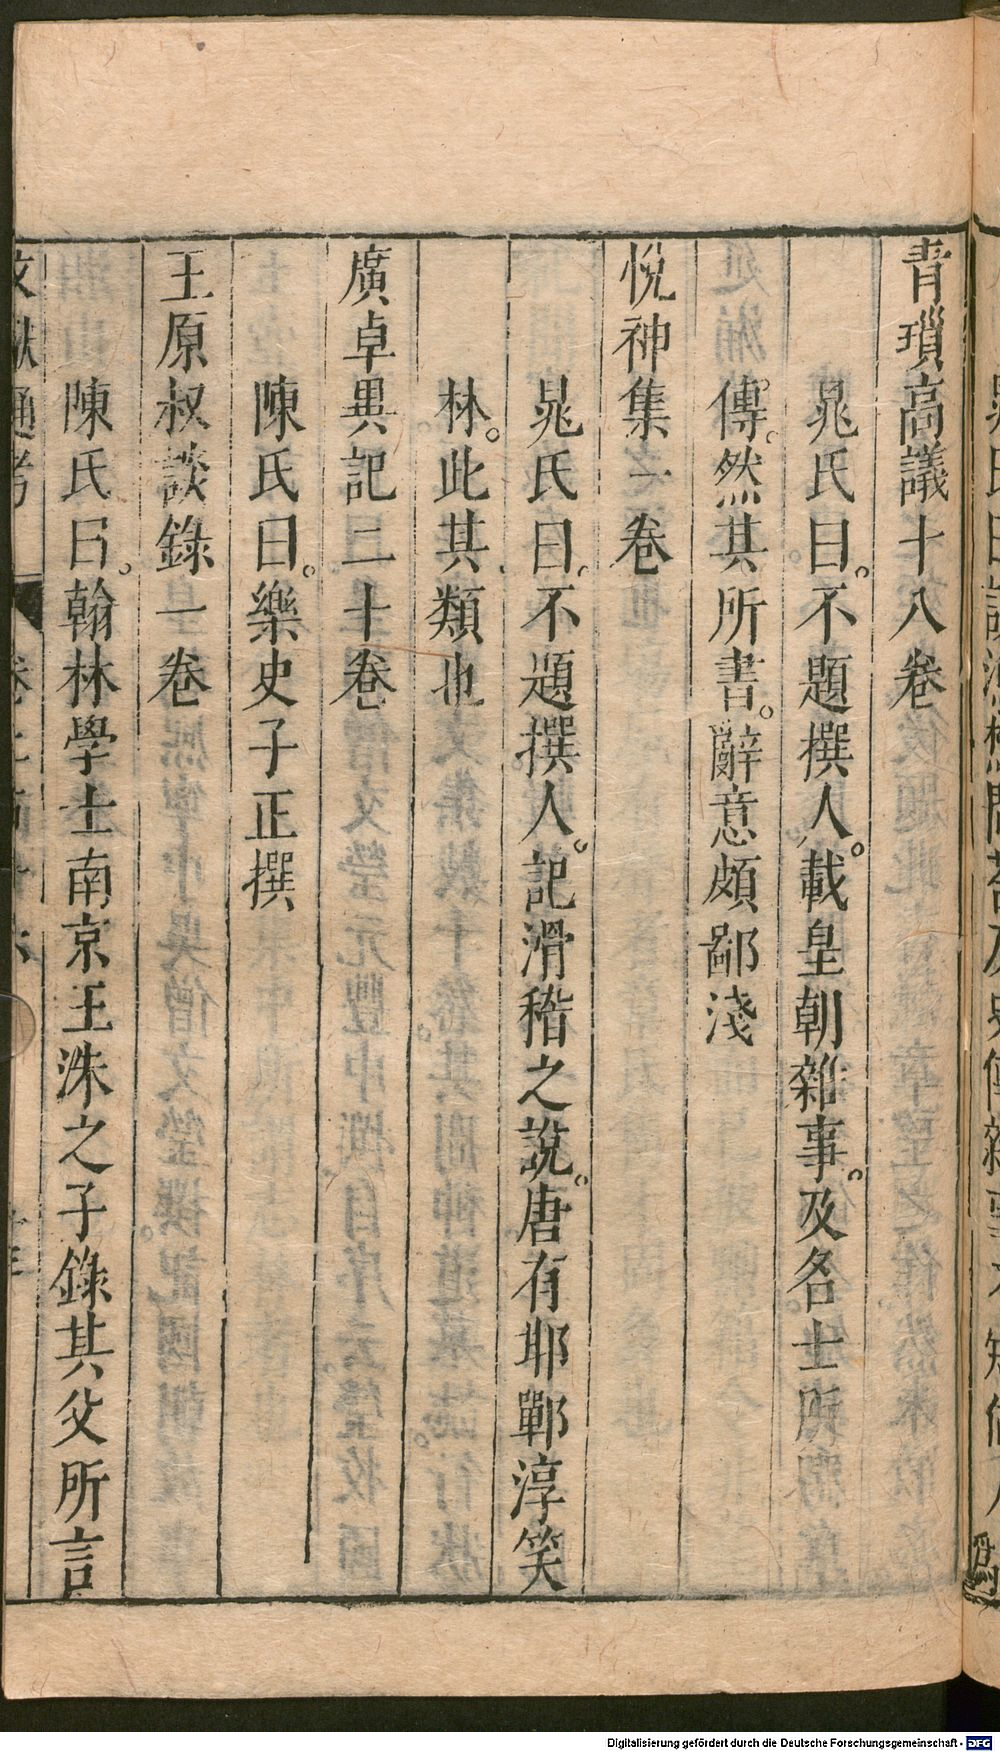 青瑣高議十八卷
晁氏曰。不題撰人。載皇朝雜事。及名士所
傳。然其所書。辭意頗鄙淺
悅神集一卷
晁氏曰。不題撰人。記滑稽之說。唐有邯鄲淳笑
林。此其類也
廣卓異記二十卷
陳氏曰。樂史子正撰
王原叔談錄一卷
陳氏曰。翰林學士南京王洙之子錄其父所言
文獻通考
Digitalisierung gefördert durch die Deutsche Forschungsgemeinschaft - DFG